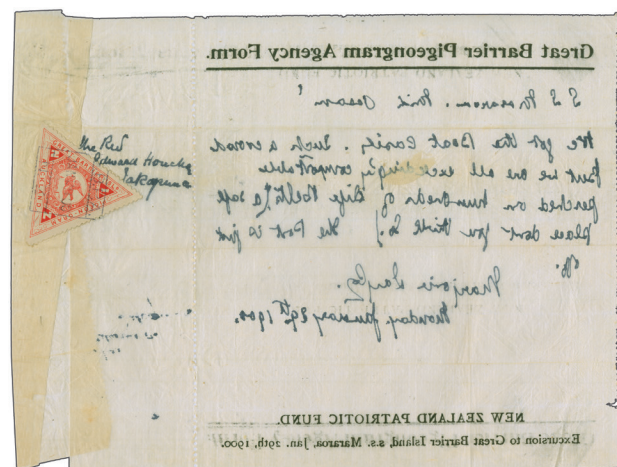 Great Barrier Pigeongram Agency Form.
S S Mararoa. Mid Ocean
We got the Boat easily. Such a crowd
but we are all exceedingly comfortable
perched on hundreds of life belts (a safe
place dont you think so). The Post is just
off.
Marjorie
Monday January 29th 1900.
The Rev
Edward
Takapuna
AUCKLAND
NEW ZEALAND PATRIOTIC FUND.
Excursion to Great Barrier Island, s.s. Mararoa, Jan. 29th, 1900.